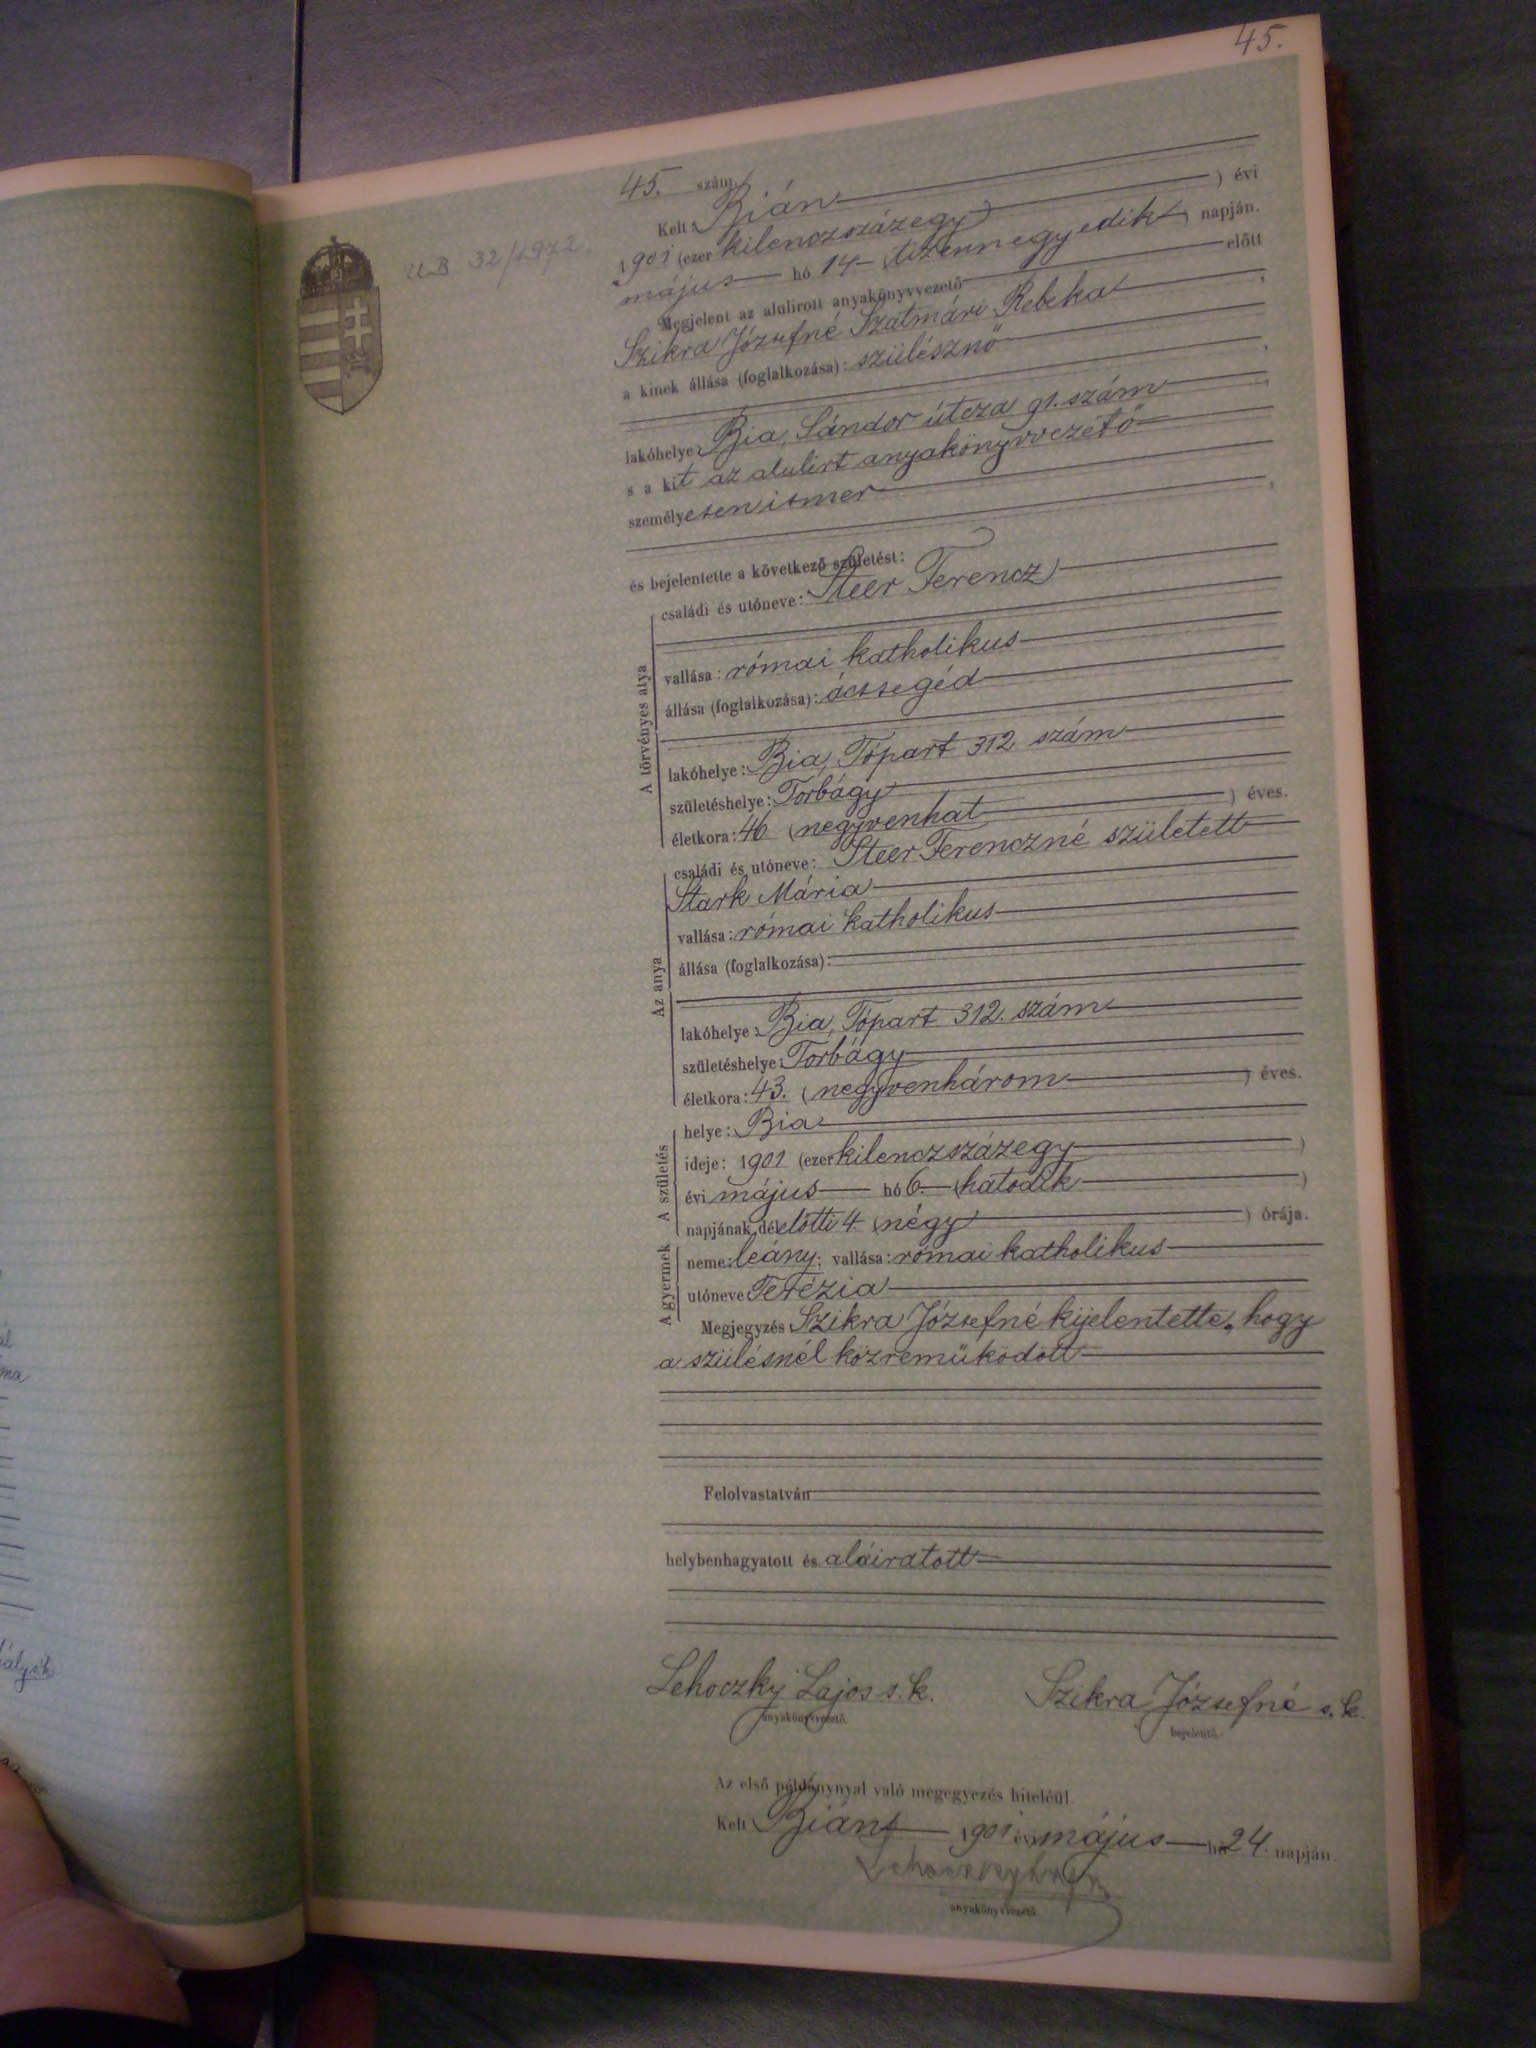 45.
45. szám
U.B 32/1972.
Kelt: Bián
1901 (ezer kilenczszázegy) évi
május hó 14 (tizennegyedik) napján.
Megjelent az alulirott anyakönyvvezető előtt
Szikra Józsefné Szatmári Rebeka,
a kinek állása (foglalkozása): szülésznő
lakóhelye: Bia, Sándor útcza 91. szám
s a kit az alulirt anyakönyvvezető
személyesen ismer,
és bejelentette a következő születést:
A törvényes atya
családi és utóneve: Steer Ferencz
vallása: római katholikus
állása (foglalkozása): ácssegéd
lakóhelye: Bia, Tópart 312 szám
születéshelye: Torbágy
életkora: 46 (negyvenhat) éves.
Az anya
családi és utóneve: Steer Ferenczné született
Stark Mária
vallása: római katholikus
állása (foglalkozása):
lakóhelye: Bia, Tópart 312. szám
születéshelye: Torbágy
életkora: 43. (negyvenhárom) éves.
A születés
helye: Bia
ideje: 1901 (ezer kilenczszázegy)
évi május hó 6. (hatodik)
napjának délelőtti 4 (négy) órája.
A gyermek
neme: leány; vallása: római katholikus
utóneve Terézia
Megjegyzés: Szikra Józsefné kijelentette, hogy
a szülésnél közreműködött
Felolvastatván
helybenhagyatott és aláiratott
Lehoczky Lajos s.k. Szikra Józsefné s.k.
anyakönyvvezető. bejelentő.
Az első példánynyal való megegyezés hiteléül.
Kelt Bián, 1901 évi május hó 24. napján.
Lehoczky Lajos
anyakönyvvezető.